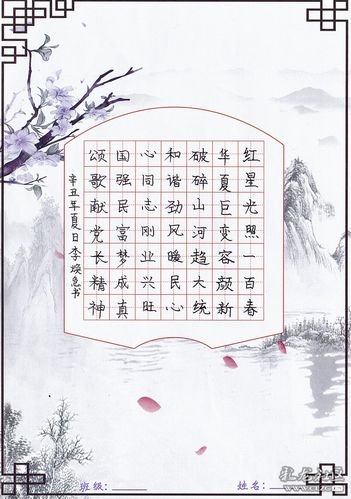 红星光照一百春
华夏巨变容颜新
破碎山河趋大统
和谐劲风暖民心
心同志刚业兴旺
国强民富梦成真
颂歌献党长精神
辛丑年夏日李焕急书
班级：
姓名：